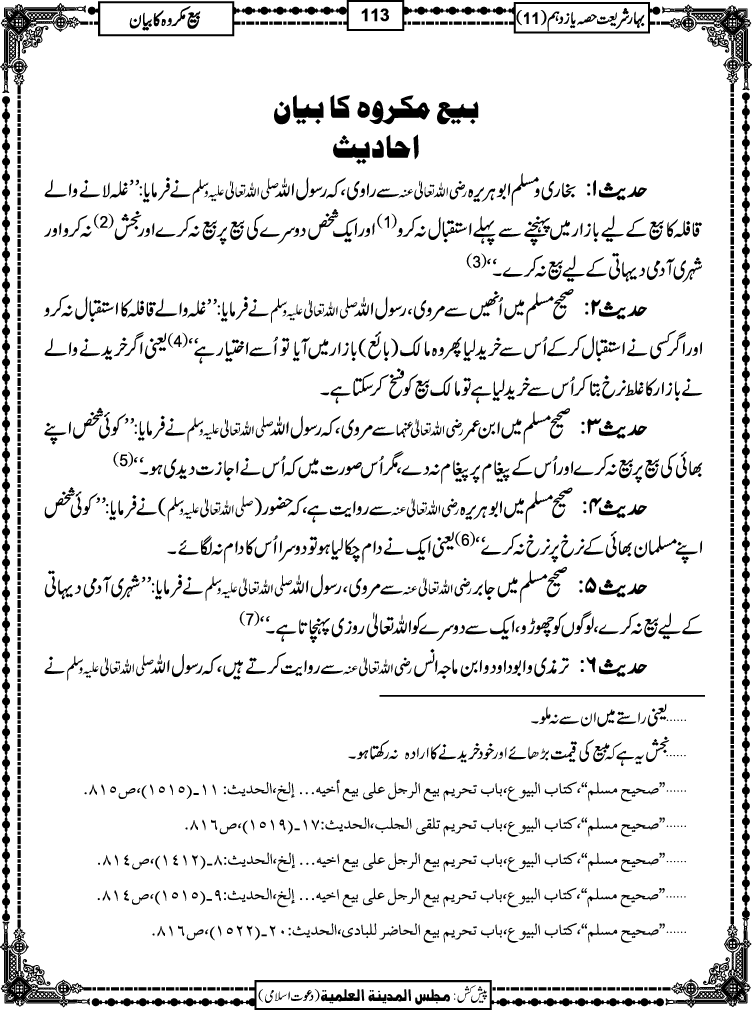 بہارشریعت حصہ یازدہم (11)
113
بیع مکروہ کا بیان
بیع مکروہ کا بیان
احادیث
حدیث ۱: بخاری و مسلم ابوہریرہ رضی اللہ تعالیٰ عنہ سے راوی، کہ رسول اللہ صلی اللہ تعالیٰ علیہ وسلم نے فرمایا: ’’غلہ لانے والے
قافلہ کا بیع کے لیے بازار میں پہنچنے سے پہلے استقبال نہ کرو(1) اور ایک شخص دوسرے کی بیع پر بیع نہ کرے اور نجش(2) نہ کرو اور
شہری آدمی دیہاتی کے لیے بیع نہ کرے۔‘‘(3)
حدیث ۲: صحیح مسلم میں اُنھیں سے مروی، رسول اللہ صلی اللہ تعالیٰ علیہ وسلم نے فرمایا: ’’غلہ والے قافلہ کا استقبال نہ کرو
اور اگر کسی نے استقبال کر کے اُس سے خرید لیا پھر وہ مالک (بائع) بازار میں آیا تو اُسے اختیار ہے‘‘(4) یعنی اگر خریدنے والے
نے بازار کا غلط نرخ بتا کر اُس سے خرید لیا ہے تو مالک بیع کو فسخ کر سکتا ہے۔
حدیث ۳: صحیح مسلم میں ابن عمر رضی اللہ تعالیٰ عنہما سے مروی، کہ رسول اللہ صلی اللہ تعالیٰ علیہ وسلم نے فرمایا: ’’کوئی شخص اپنے
بھائی کی بیع پر بیع نہ کرے اور اُس کے پیغام پر پیغام نہ دے، مگر اُس صورت میں کہ اُس نے اجازت دیدی ہو۔‘‘(5)
حدیث ۴: صحیح مسلم میں ابوہریرہ رضی اللہ تعالیٰ عنہ سے روایت ہے، کہ حضور (صلی اللہ تعالیٰ علیہ وسلم) نے فرمایا: ’’کوئی شخص
اپنے مسلمان بھائی کے نرخ پر نرخ نہ کرے‘‘(6) یعنی ایک نے دام چکا لیا ہو تو دوسرا اُس کا دام نہ لگائے۔
حدیث ۵: صحیح مسلم میں جابر رضی اللہ تعالیٰ عنہ سے مروی، رسول اللہ صلی اللہ تعالیٰ علیہ وسلم نے فرمایا: ’’شہری آدمی دیہاتی
کے لیے بیع نہ کرے، لوگوں کو چھوڑو، ایک سے دوسرے کو اللہ تعالیٰ روزی پہنچاتا ہے۔‘‘(7)
حدیث ۶: ترمذی و ابوداود و ابن ماجہ انس رضی اللہ تعالیٰ عنہ سے روایت کرتے ہیں، کہ رسول اللہ صلی اللہ تعالیٰ علیہ وسلم نے
......یعنی راستے میں ان سے نہ ملو۔
......نجش یہ ہے کہ مبیع کی قیمت بڑھائے اور خود خریدنے کا ارادہ نہ رکھتا ہو۔
......”صحیح مسلم“، کتاب البیوع، باب تحریم بیع الرجل علی بیع أخیہ... إلخ، الحدیث: ۱۱۔(۱۵۱۵)، ص۸۱۵.
......”صحیح مسلم“، کتاب البیوع، باب تحریم تلقی الجلب، الحدیث: ۱۷۔(۱۵۱۹)، ص۸۱۶.
......”صحیح مسلم“، کتاب البیوع، باب تحریم بیع الرجل علی بیع اخیہ... إلخ، الحدیث: ۸۔(۱۴۱۲)، ص۸۱۴.
......”صحیح مسلم“، کتاب البیوع، باب تحریم بیع الرجل علی بیع اخیہ... إلخ، الحدیث: ۹۔(۱۵۱۵)، ص۸۱۴.
......”صحیح مسلم“، کتاب البیوع، باب تحریم بیع الحاضر للبادی، الحدیث: ۲۰۔(۱۵۲۲)، ص۸۱۶.
پیش کش: مجلس المدینۃ العلمیۃ (دعوت اسلامی)